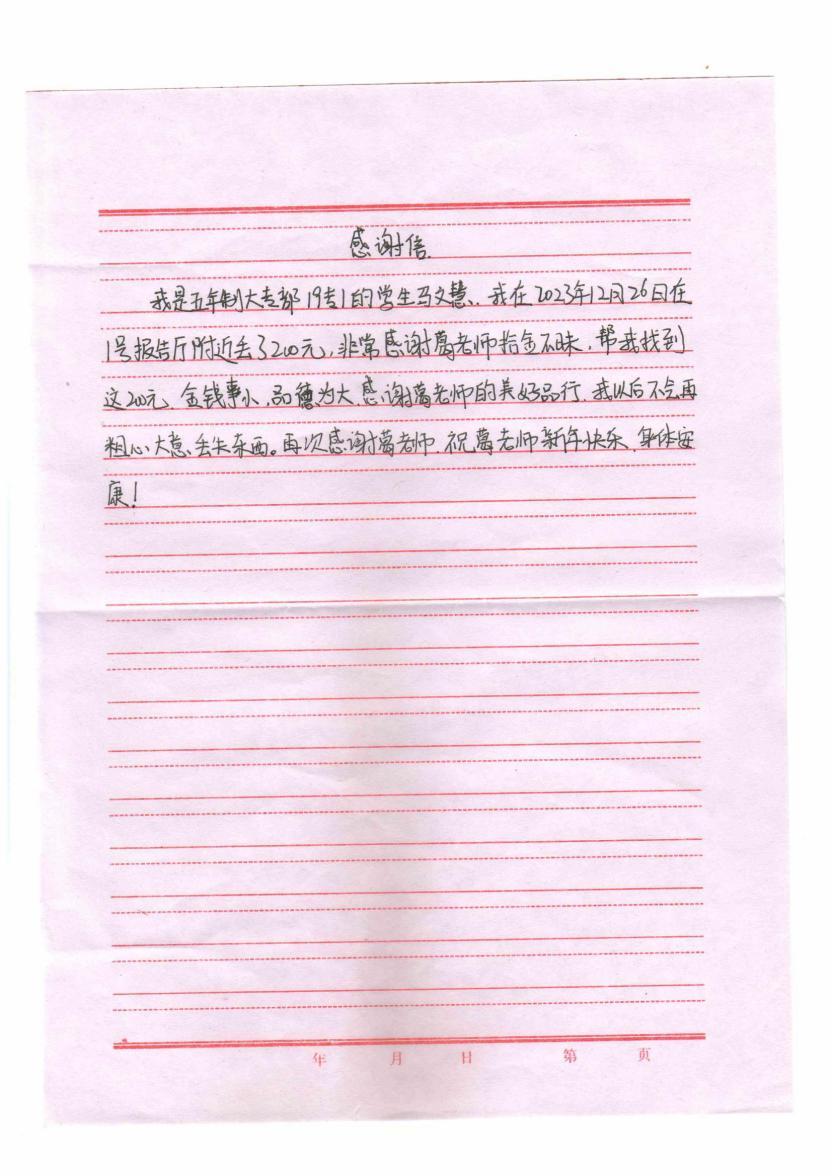 感谢信
我是五年制大专部19专1的学生马文慧、我在2023年12月26日在
1号报告厅附近丢了200元，非常感谢葛老师拾金不昧，帮我找到
这200元，金钱事小，品德为大，感谢葛老师的美好品行，我以后不会再
粗心大意，丢失东西。再次感谢葛老师，祝葛老师新年快乐，身体安
康！
年 月 日 第 页